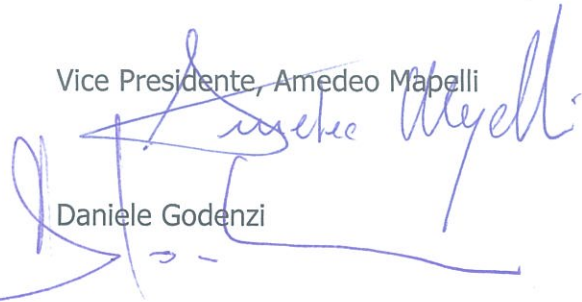 Vice Presidente, Amedeo Mapelli
Amedeo Mapelli
Daniele Godenzi